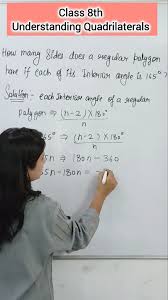 Class 8th
Understanding Quadrilaterals
How many Sides does a regular polygon
have if each of its Interior angle is 165°?
Solution:- each Interior angle of a regular
polygon ⇒ (n-2)×180° / n
165° ⇒ (n-2)×180° / n
5n ⇒ 180n - 360
5n - 180n =